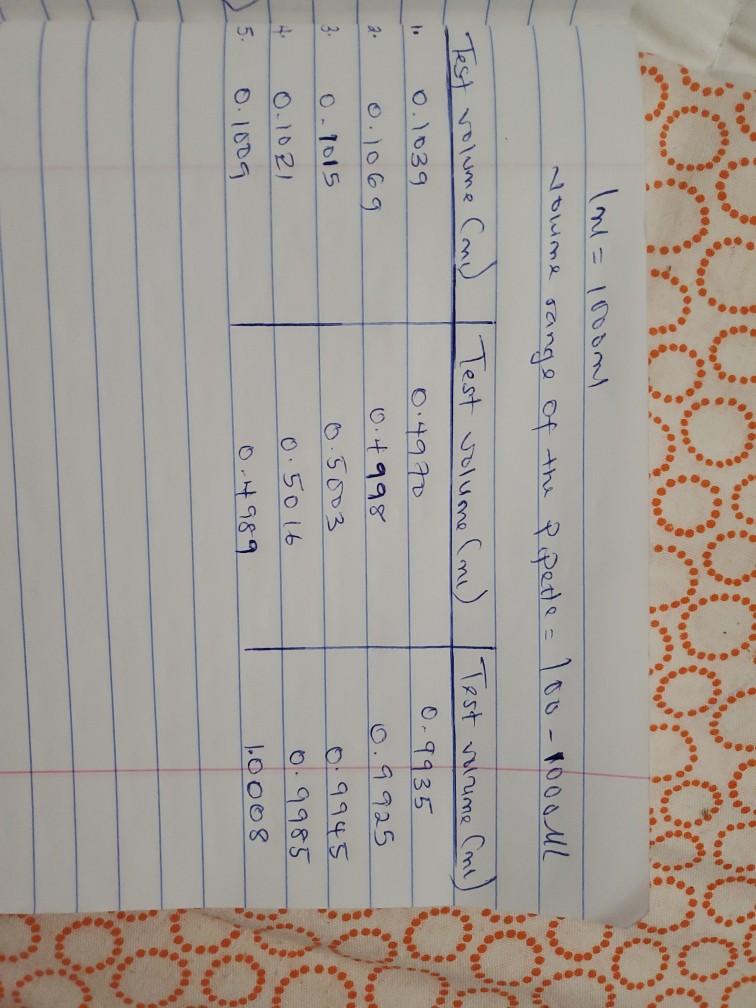 1ml = 1000ml
Volume range of the Pipette = 100 - 1000Ml
Test volume (ml) Test volume (ml) Test volume (ml)
1. 0.1039 0.4970 0.9935
2. 0.1069 0.4998 0.9925
3. 0.1015 0.5003 0.9945
4. 0.1021 0.5016 0.9985
5. 0.1009 0.4989 1.0008